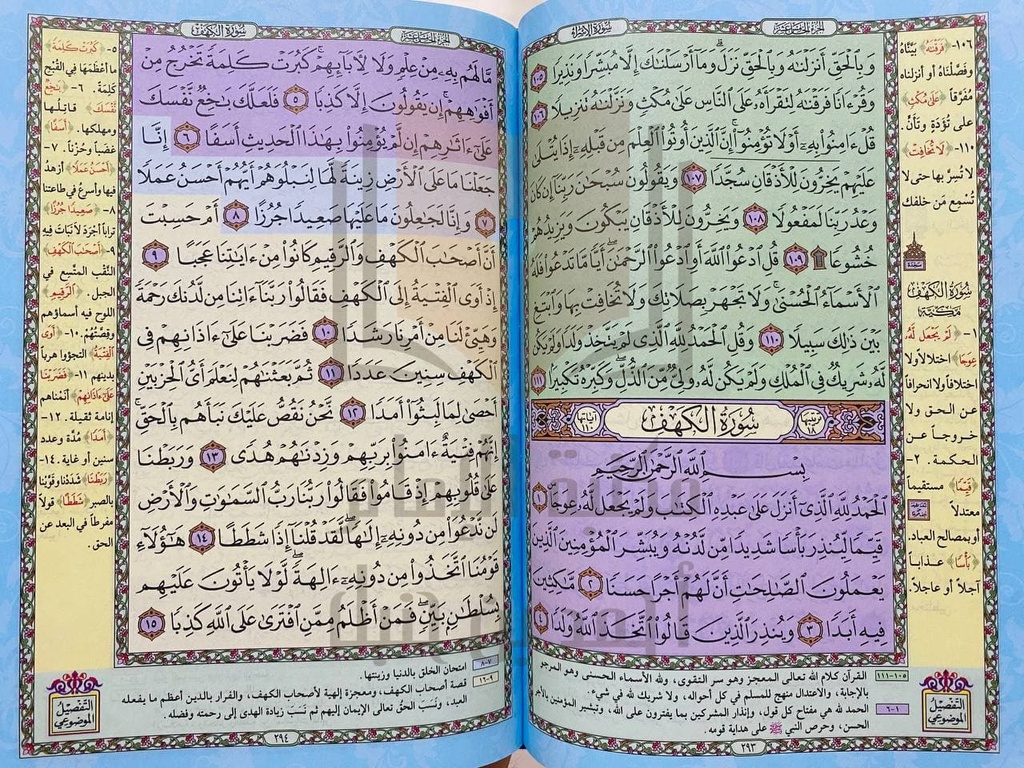 سورة الإسراء
الجزء الخامس عشر
وَبِالْحَقِّ أَنزَلْنَاهُ وَبِالْحَقِّ نَزَلَ وَمَا أَرْسَلْنَاكَ إِلَّا مُبَشِّرًا وَنَذِيرًا ١٠٥
وَقُرْءَانًا فَرَقْنَاهُ لِتَقْرَأَهُ عَلَى النَّاسِ عَلَى مُكْثٍ وَنَزَّلْنَاهُ تَنزِيلًا ١٠٦
قُلْ ءَامِنُوا بِهِ أَوْ لَا تُؤْمِنُوا إِنَّ الَّذِينَ أُوتُوا الْعِلْمَ مِن قَبْلِهِ إِذَا يُتْلَى
عَلَيْهِمْ يَخِرُّونَ لِلْأَذْقَانِ سُجَّدًا ١٠٧ وَيَقُولُونَ سُبْحَانَ رَبِّنَا إِن كَانَ
وَعْدُ رَبِّنَا لَمَفْعُولًا ١٠٨ وَيَخِرُّونَ لِلْأَذْقَانِ يَبْكُونَ وَيَزِيدُهُمْ
خُشُوعًا ۩ ١٠٩ قُلِ ادْعُوا اللَّهَ أَوِ ادْعُوا الرَّحْمَٰنَ أَيًّا مَّا تَدْعُوا فَلَهُ
الْأَسْمَاءُ الْحُسْنَى وَلَا تَجْهَرْ بِصَلَاتِكَ وَلَا تُخَافِتْ بِهَا وَابْتَغِ
بَيْنَ ذَٰلِكَ سَبِيلًا ١١٠ وَقُلِ الْحَمْدُ لِلَّهِ الَّذِي لَمْ يَتَّخِذْ وَلَدًا وَلَمْ يَكُن
لَّهُ شَرِيكٌ فِي الْمُلْكِ وَلَمْ يَكُن لَّهُ وَلِيٌّ مِّنَ الذُّلِّ وَكَبِّرْهُ تَكْبِيرًا ١١١
ترتيبها ١٨ سورة الكهف آياتها ١١٠
بِسْمِ اللَّهِ الرَّحْمَٰنِ الرَّحِيمِ
الْحَمْدُ لِلَّهِ الَّذِي أَنزَلَ عَلَى عَبْدِهِ الْكِتَابَ وَلَمْ يَجْعَل لَّهُ عِوَجًا ١
قَيِّمًا لِّيُنذِرَ بَأْسًا شَدِيدًا مِّن لَّدُنْهُ وَيُبَشِّرَ الْمُؤْمِنِينَ الَّذِينَ
يَعْمَلُونَ الصَّالِحَاتِ أَنَّ لَهُمْ أَجْرًا حَسَنًا ٢ مَّاكِثِينَ
فِيهِ أَبَدًا ٣ وَيُنذِرَ الَّذِينَ قَالُوا اتَّخَذَ اللَّهُ وَلَدًا ٤
١٠٦- ﴿فَرَقْنَاهُ﴾ بَيَّنَّاهُ
وفصَّلْناهُ أو أنزلناه
مُفَرَّقاً ﴿عَلَى مُكْثٍ﴾
على تُؤَدَةٍ وتأنٍّ.
١١٠- ﴿لَا تُخَافِتْ﴾
لا تُسِرَّ بها حتى لا
تُسْمِعَ مَن خلفك
سجدة
سورة الكهف
مكية
١- ﴿لَمْ يَجْعَل لَّهُ
عِوَجًا﴾ اختلالاً ولا
اختلافاً ولا انحرافاً
عن الحق ولا
خروجاً عن
الحكمة. ٢-
﴿قَيِّمًا﴾ مستقيماً
معتدلاً
أو بمصالح العباد.
﴿بَأْسًا﴾ عذاباً
آجلاً أو عاجلاً.
١٠٥-١١١ القرآن كلام الله تعالى المعجز وهو سر التقوى، ولله الأسماء الحسنى وهو المرجو
بالإجابة، والاعتدال منهج للمسلم في كل أحواله، ولا شريك لله في شيء.
١-٦ الحمد لله هي مفتاح كل قول، وإنذار المشركين بما يفترون على الله، وتبشير المؤمنين بالأجر
الحسن، وحرص النبي ﷺ على هداية قومه.
التفصيل الموضوعي
٢٩٣
الجزء الخامس عشر
سورة الكهف
مَّا لَهُم بِهِ مِنْ عِلْمٍ وَلَا لِآبَائِهِمْ كَبُرَتْ كَلِمَةً تَخْرُجُ مِنْ
أَفْوَاهِهِمْ إِن يَقُولُونَ إِلَّا كَذِبًا ٥ فَلَعَلَّكَ بَاخِعٌ نَّفْسَكَ
عَلَى ءَاثَارِهِمْ إِن لَّمْ يُؤْمِنُوا بِهَٰذَا الْحَدِيثِ أَسَفًا ٦ إِنَّا
جَعَلْنَا مَا عَلَى الْأَرْضِ زِينَةً لَّهَا لِنَبْلُوَهُمْ أَيُّهُمْ أَحْسَنُ عَمَلًا
٧ وَإِنَّا لَجَاعِلُونَ مَا عَلَيْهَا صَعِيدًا جُرُزًا ٨ أَمْ حَسِبْتَ
أَنَّ أَصْحَابَ الْكَهْفِ وَالرَّقِيمِ كَانُوا مِنْ ءَايَاتِنَا عَجَبًا ٩
إِذْ أَوَى الْفِتْيَةُ إِلَى الْكَهْفِ فَقَالُوا رَبَّنَا ءَاتِنَا مِن لَّدُنكَ رَحْمَةً
وَهَيِّئْ لَنَا مِنْ أَمْرِنَا رَشَدًا ١٠ فَضَرَبْنَا عَلَى ءَاذَانِهِمْ فِي
الْكَهْفِ سِنِينَ عَدَدًا ١١ ثُمَّ بَعَثْنَاهُمْ لِنَعْلَمَ أَيُّ الْحِزْبَيْنِ
أَحْصَى لِمَا لَبِثُوا أَمَدًا ١٢ نَّحْنُ نَقُصُّ عَلَيْكَ نَبَأَهُم بِالْحَقِّ
إِنَّهُمْ فِتْيَةٌ ءَامَنُوا بِرَبِّهِمْ وَزِدْنَاهُمْ هُدًى ١٣ وَرَبَطْنَا
عَلَى قُلُوبِهِمْ إِذْ قَامُوا فَقَالُوا رَبُّنَا رَبُّ السَّمَاوَاتِ وَالْأَرْضِ
لَن نَّدْعُوَا مِن دُونِهِ إِلَٰهًا لَّقَدْ قُلْنَا إِذًا شَطَطًا ١٤ هَٰؤُلَاءِ
قَوْمُنَا اتَّخَذُوا مِن دُونِهِ ءَالِهَةً لَّوْلَا يَأْتُونَ عَلَيْهِم
بِسُلْطَانٍ بَيِّنٍ فَمَنْ أَظْلَمُ مِمَّنِ افْتَرَى عَلَى اللَّهِ كَذِبًا ١٥
٥- ﴿كَبُرَتْ كَلِمَةً﴾
ما أعْظَمَها في القُبْحِ
كَلِمَةً. ٦- ﴿بَاخِعٌ
نَّفْسَكَ﴾ قاتلها
ومهلكها. ﴿أَسَفًا﴾
غضباً وحُزْناً. ٧-
﴿أَحْسَنُ عَمَلًا﴾ أزهدُ
فيها وأسرعُ في طاعتنا
٨- ﴿صَعِيدًا جُرُزًا﴾
تراباً أجرَدَ لا نَبَات فِيه
٩- ﴿أَصْحَابَ الْكَهْفِ﴾
النَّقْب المتَّسِع في
الجبل. ﴿الرَّقِيمِ﴾
اللوح فيه أسماؤهم
وقِصَّتُهُمْ. ١٠- ﴿أَوَى
الْفِتْيَةُ﴾ التجؤوا هرباً
بدينهم ١١- ﴿فَضَرَبْنَا
عَلَى ءَاذَانِهِمْ﴾ أنَمْناهم
إنامة ثقيلة. ١٢-
﴿أَمَدًا﴾ مُدَّة وعدد
سنين أو غاية. ١٤-
﴿رَبَطْنَا﴾ شَدَدْنا وقَوَّيْنا
بالصبر ﴿شَطَطًا﴾ قولاً
مفرطاً في البعد عن
الحق.
٧-٨ امتحان الخلق بالدنيا وزينتها.
٩-١٦ قصة أصحاب الكهف، ومعجزة إلهية لأصحاب الكهف، والفرار بالدين أعظم ما يفعله
العبد، ونَسَبَ الحقُّ تعالى الإيمان إليهم ثم نَسَبَ زيادة الهدى إلى رحمته وفضله.
التفصيل الموضوعي
٢٩٤